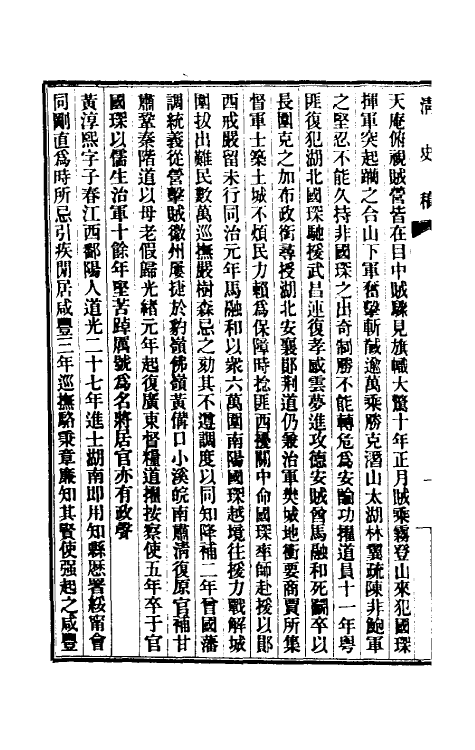 清史稿
天庵俯視賊營皆在目中賊驟見旗幟大驚十年正月賊乘霧登山來犯國琛
揮軍突起躪之台山下軍奮擊斬馘逾萬乘勝克潛山太湖林翼疏陳非鮑軍
之堅忍不能久持非國琛之出奇制勝不能轉危爲安論功擢道員十一年粵
匪復犯湖北國琛馳援武昌連復孝感雲夢進攻德安賊酋馬融和死鬬卒以
長圍克之加布政銜尋授湖北安襄鄖荆道仍兼治軍樊城地衝要商賈所集
督軍士築土城不煩民力賴爲保障時捻匪西擾關中命國琛率師赴援以鄖
西戒嚴留未行同治元年馬融和以衆六萬圍南陽國琛越境往援力戰解城
圍拔出難民數萬巡撫嚴樹森忌之劾其不遵調度以同知降補二年曾國藩
調統義從營擊賊徽州屢捷於豹嶺佛嶺黃備口小溪皖南肅清復原官補甘
肅鞏秦階道以母老假歸光緒元年起復廣東督糧道擢按察使五年卒于官
國琛以儒生治軍十餘年堅苦踔厲號爲名將居官亦有政聲
黃淳熙字子春江西鄱陽人道光二十七年進士湖南即用知縣歷署綏甯會
同剛直爲時所忌引疾閒居咸豐三年巡撫駱秉章廉知其賢使强起之咸豐